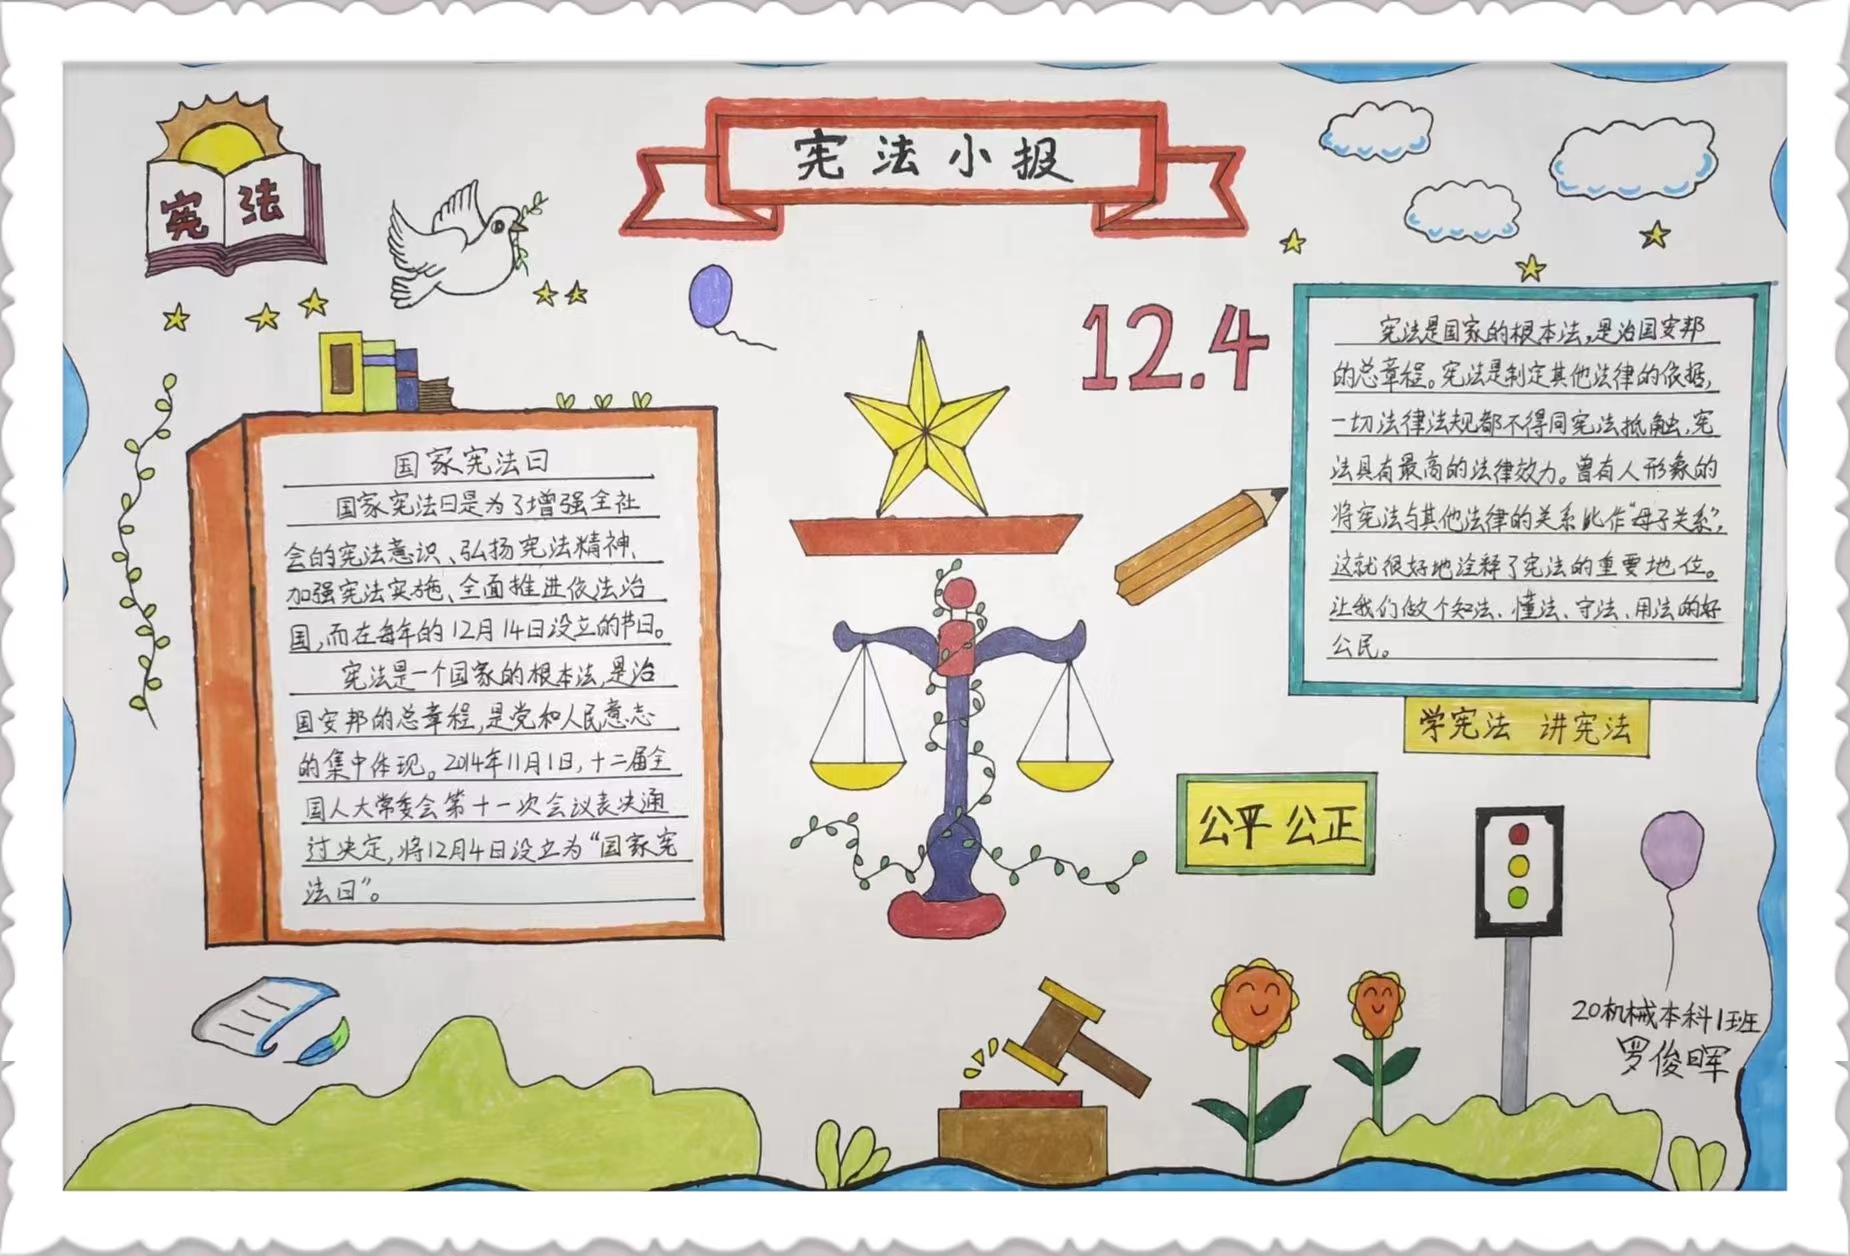 宪法小报
宪法
12.4
国家宪法日
国家宪法日是为了增强全社
会的宪法意识、弘扬宪法精神、
加强宪法实施、全面推进依法治
国,而在每年的12月14日设立的节日。
宪法是一个国家的根本法,是治
国安邦的总章程,是党和人民意志
的集中体现。2014年11月1日,十二届全
国人大常委会第十一次会议表决通
过决定,将12月4日设立为“国家宪
法日”。
宪法是国家的根本法,是治国安邦
的总章程。宪法是制定其他法律的依据,
一切法律法规都不得同宪法抵触,宪
法具有最高的法律效力。曾有人形象的
将宪法与其他法律的关系比作“母子关系”,
这就很好地诠释了宪法的重要地位。
让我们做个知法、懂法、守法、用法的好
公民。
学宪法 讲宪法
公平 公正
20机械本科1班
罗俊晖